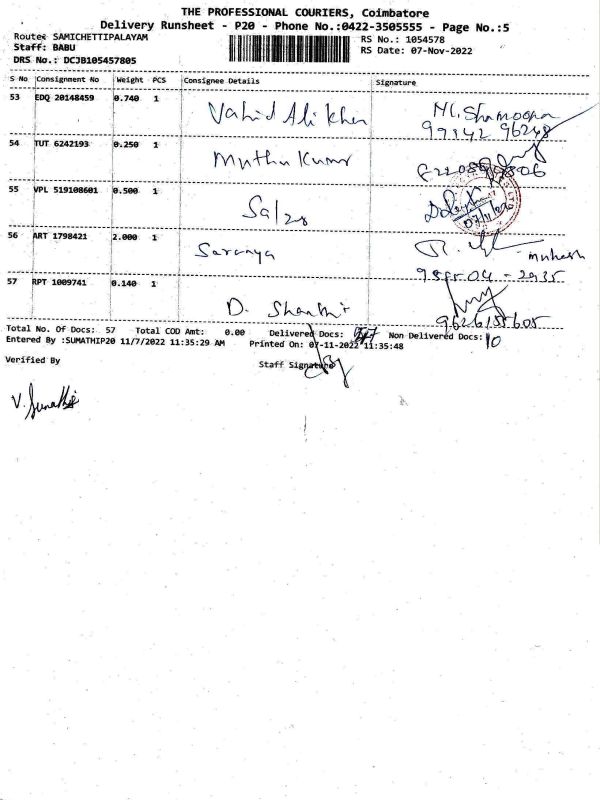 THE PROFESSIONAL COURIERS, Coimbatore
Delivery Runsheet - P20 - Phone No.:0422-3505555 - Page No.:5
Route: SAMICHETTIPALAYAM
RS No.: 1054578
Staff: BABU
RS Date: 07-Nov-2022
DRS No.: DCJB105457805
S No Consignment No Weight PCS Consignee Details Signature
53 EDQ 20148459 0.740 1 Vahid Ali khan
54 TUT 6242193 0.250 1 Muthu Kumar
55 VPL 519108601 0.500 1
56 ART 1798421 2.000 1 Saranya
mukesh
57 RPT 1009741 0.140 1 D. Shanthi
9626155605
Total No. Of Docs: 57 Total COD Amt: 0.00 Delivered Docs: 47 Non Delivered Docs: 10
Entered By :SUMATHIP20 11/7/2022 11:35:29 AM Printed On: 07-11-2022 11:35:48
Verified By
Staff Signature
V. Sumathi